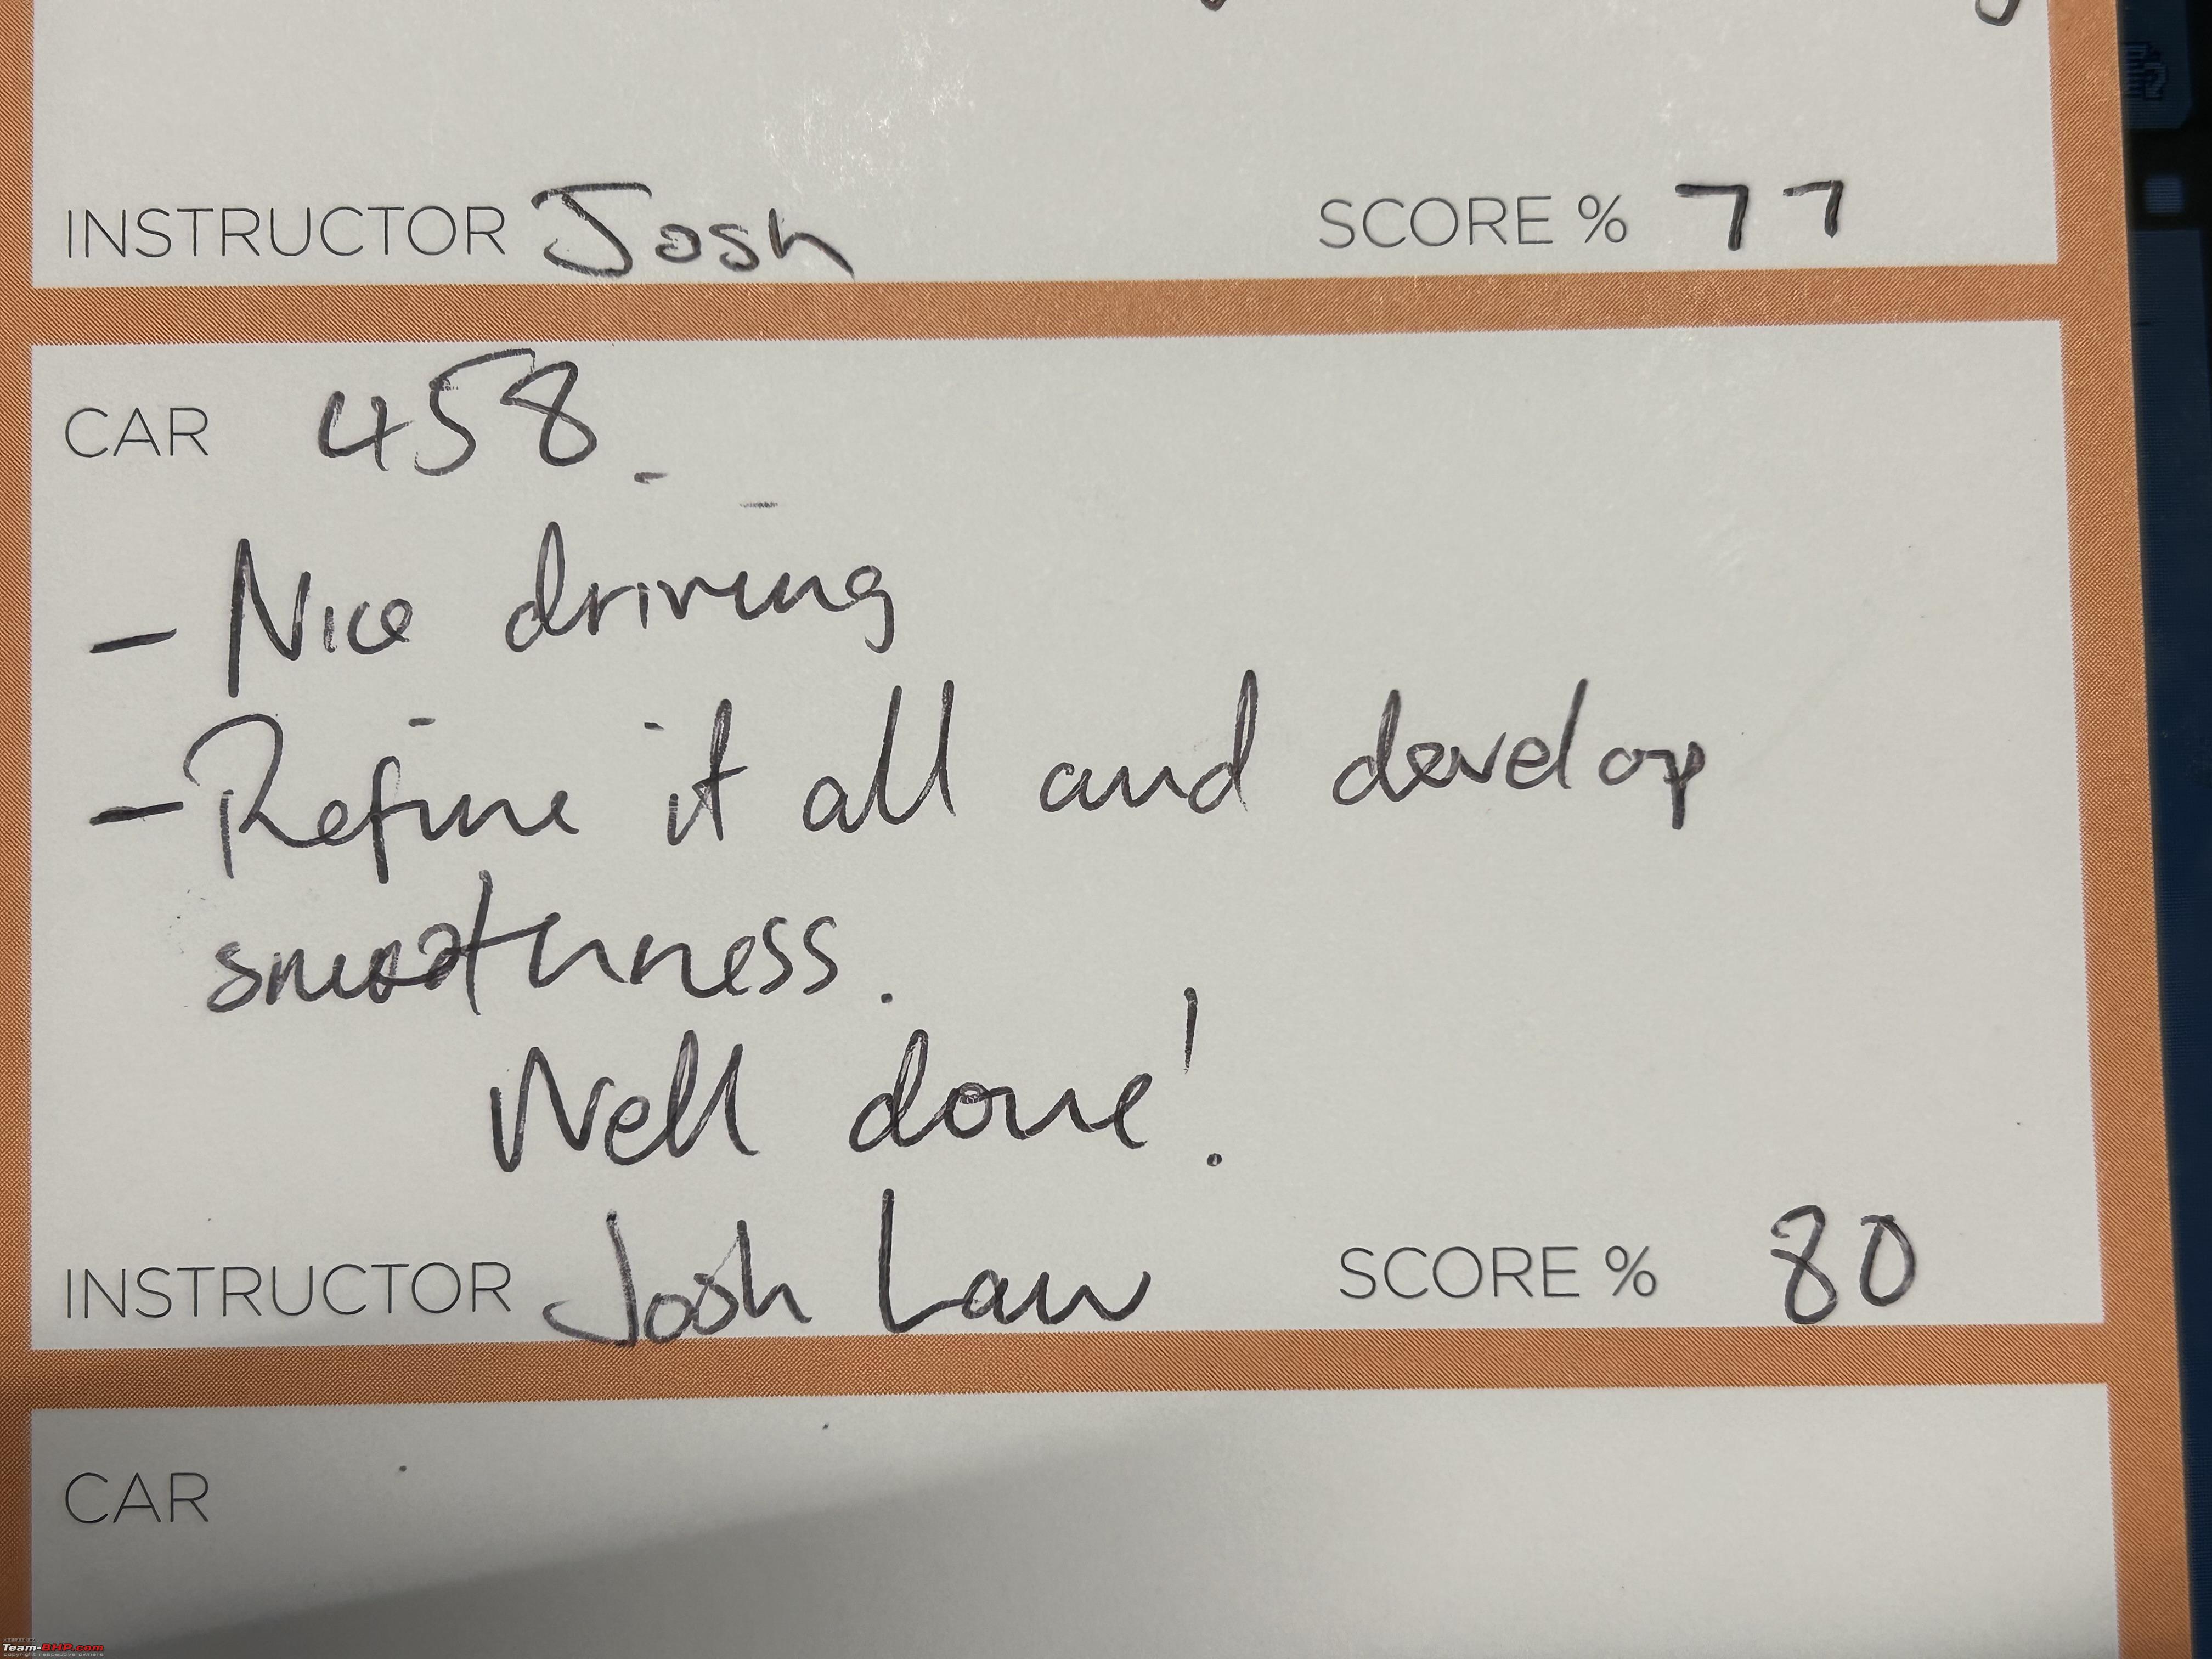 INSTRUCTOR Josh SCORE % 77
CAR 458
- Nice driving
- Refine it all and develop
smoothness.
Well done!
INSTRUCTOR Josh Law SCORE % 80
CAR
Team-BHP.com
copyright respective owners